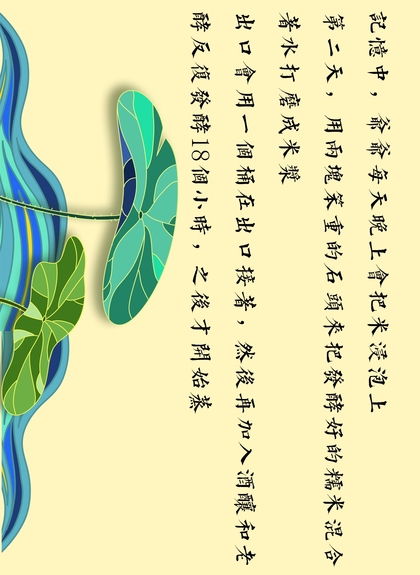 記憶中，爺爺每天晚上會把米浸泡上
第二天，用兩塊笨重的石頭來把發酵好的糯米混合
著水打磨成米漿
出口會用一個桶在出口接著，然後再加入酒釀和老
酵反復發酵18個小時，之後才開始蒸